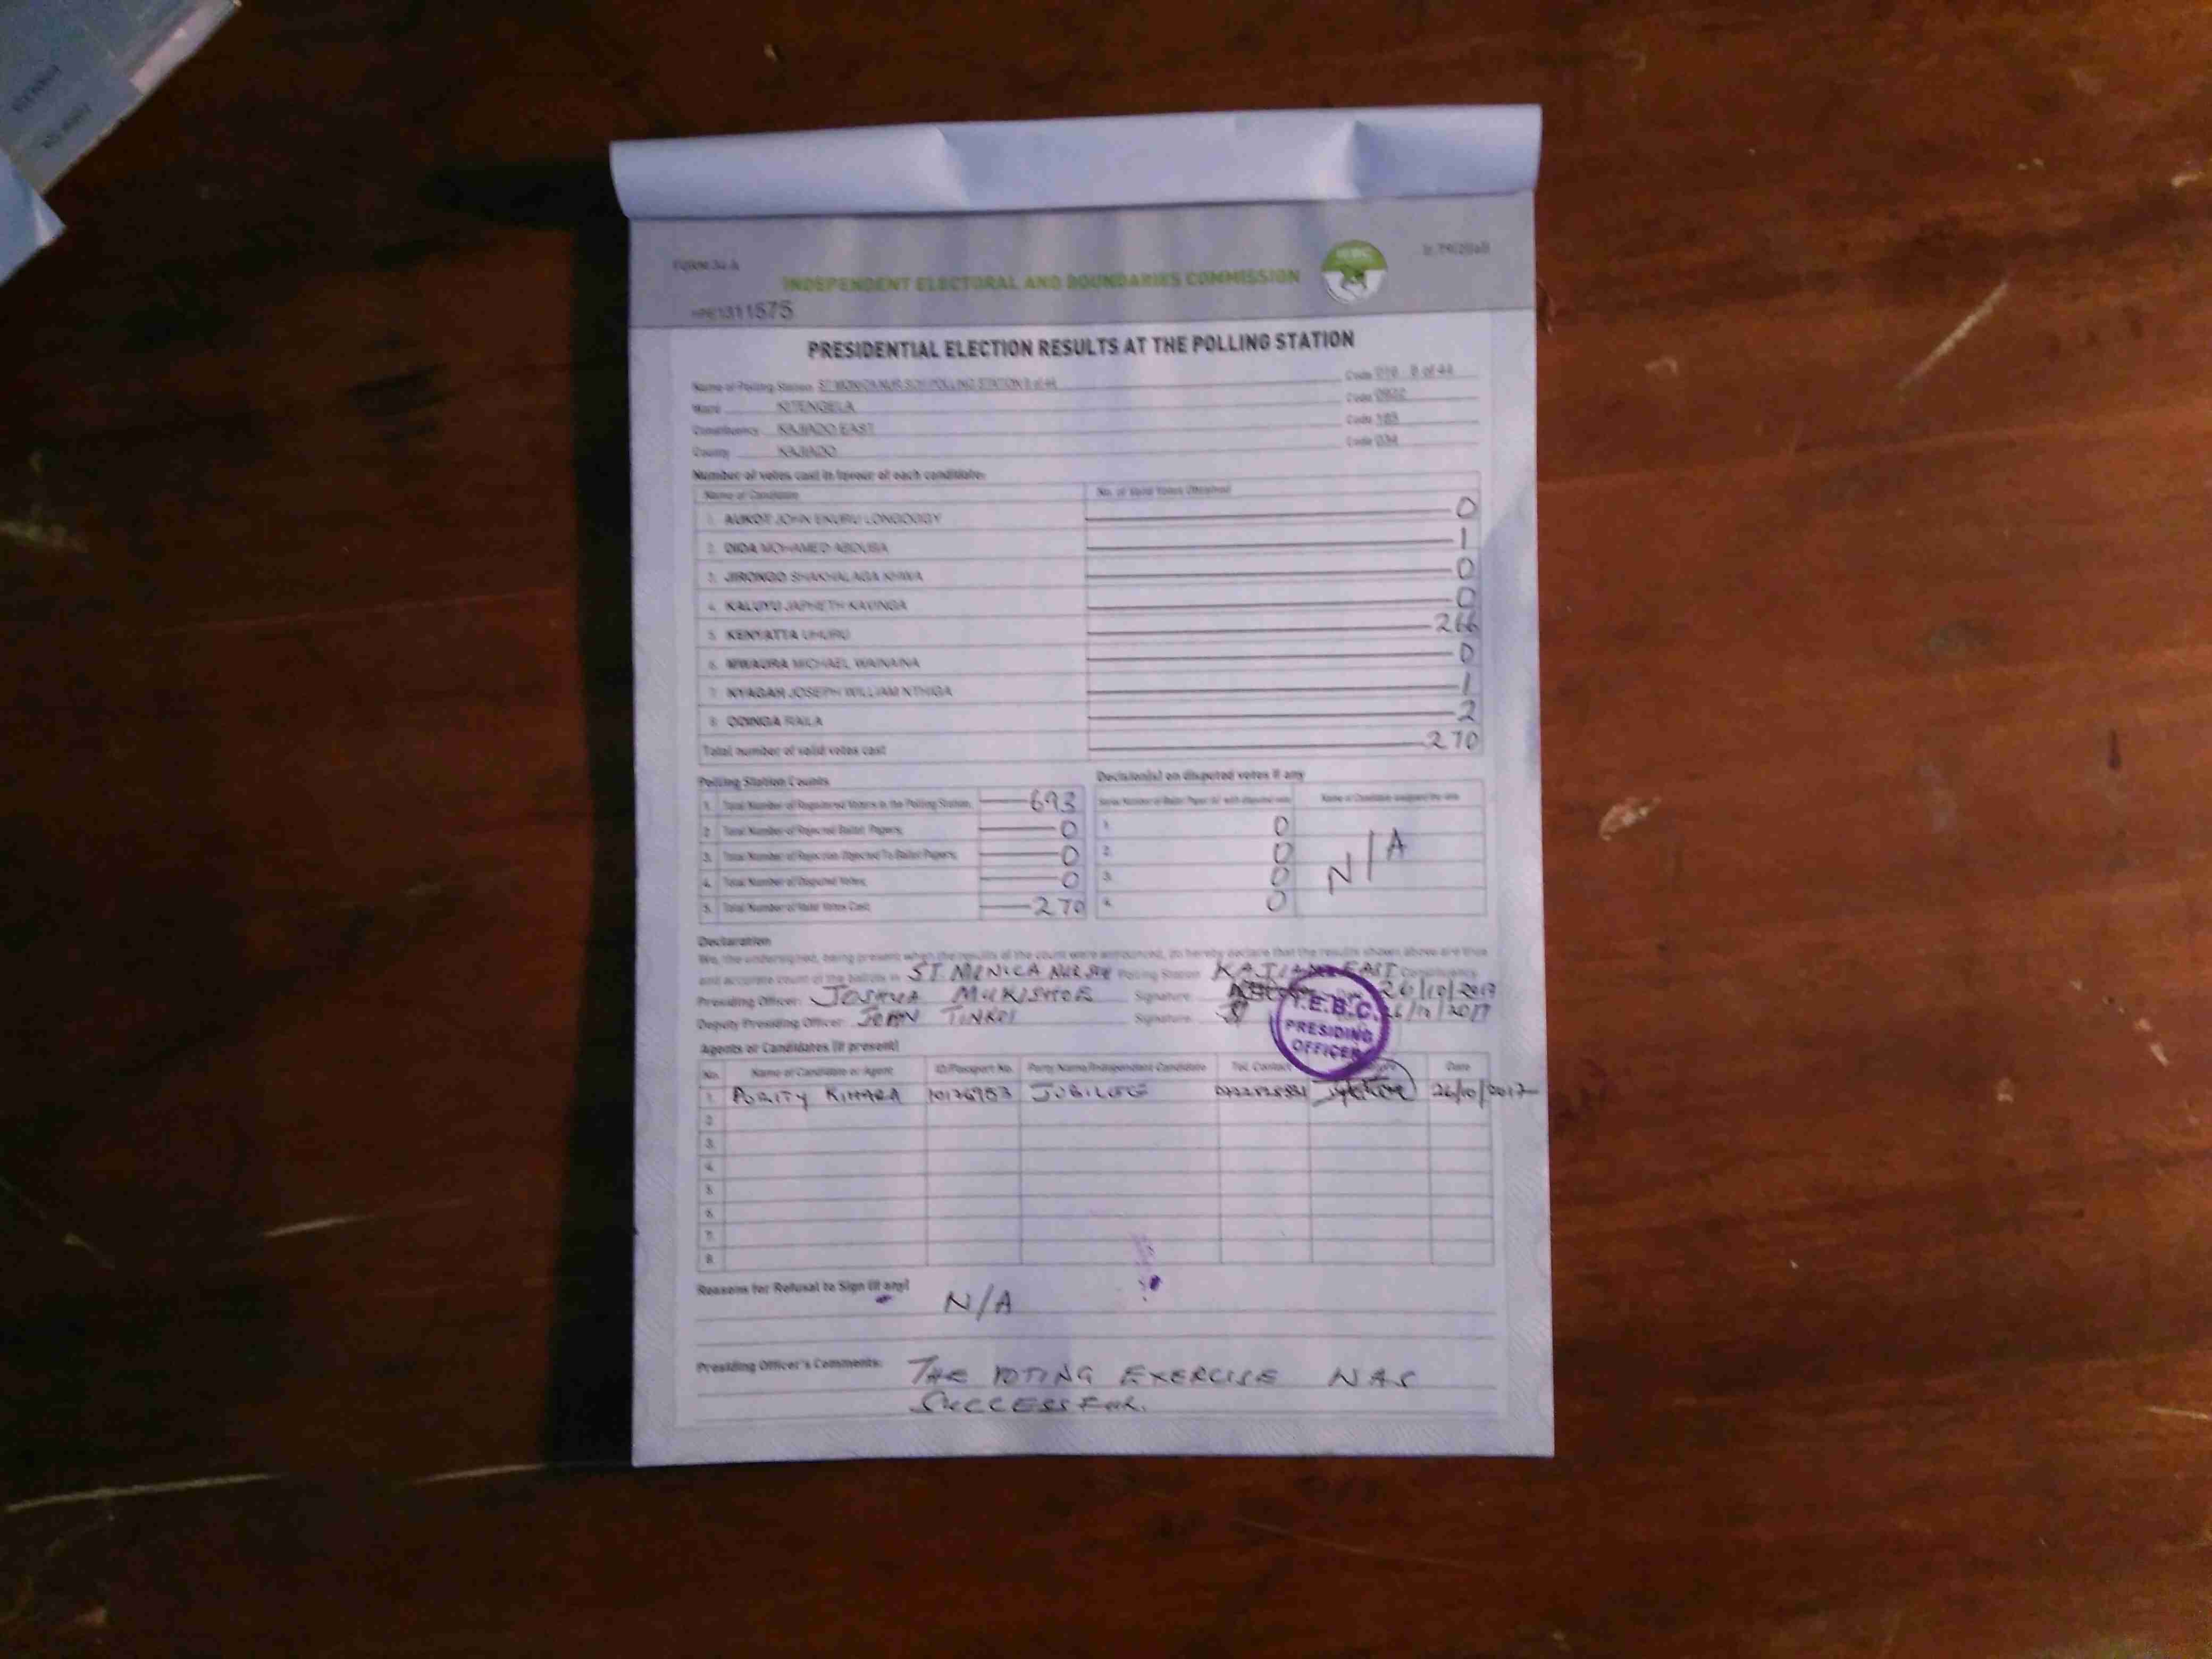 FORM 34 A
INDEPENDENT ELECTORAL AND BOUNDARIES COMMISSION
IEBC
1311575
PRESIDENTIAL ELECTION RESULTS AT THE POLLING STATION
Name of Polling Station ST MONICA NUR SCH POLLING STATION 8 of 44 Code 019 8 of 44
Ward KITENGELA Code 0922
Constituency KAJIADO EAST Code 185
County KAJIADO Code 034
Number of votes cast in favour of each candidate:
Name of Candidate No. of Valid Votes Obtained
1. AUKOT JOHN EKURU LONGOGGY 0
2. DIDA MOHAMED ABDUBA 1
3. JIRONGO SHAKHALAGA KHWA 0
4. KALUYU JAPHETH KAVINGA 0
5. KENYATTA UHURU 266
6. MWAURA MICHAEL WAINAINA 0
7. NYAGAH JOSEPH WILLIAM NTHIGA 1
8. ODINGA RAILA 2
Total number of valid votes cast 270
Polling Station Counts
1. Total Number of Registered Voters in the Polling Station 693
2. Total Number of Rejected Ballot Papers 0
3. Total Number of Rejection Objected To Ballot Papers 0
4. Total Number of Disputed Votes 0
5. Total Number of Valid Votes Cast 270
Decision(s) on disputed votes if any
Serial Number of Ballot Paper (s) with disputed vote Name of Candidate assigned the vote
1. 0
2. 0
3. 0
4. 0
N/A
Declaration
We, the undersigned, being present when the results of the count were announced, do hereby declare that the results shown above are true
and accurate count of the ballots in ST. MONICA NUR SCH Polling Station KAJIADO EAST Constituency
Presiding Officer: JOSHUA MUKISHOE Signature 26/10/2017
Deputy Presiding Officer: JOHN TINKOI Signature 26/10/2017
I.E.B.C.
PRESIDING
OFFICER
Agents or Candidates (if present)
No. Name of Candidate or Agent ID/Passport No. Party Name/Independent Candidate Tel. Contact Date
1. PURITY KIHARA 10176953 JUBILEE 26/10/2017
2.
3.
4.
5.
6.
7.
8.
Reasons for Refusal to Sign (if any)
N/A
Presiding Officer's Comments: THE VOTING EXERCISE WAS
SUCCESSFUL.